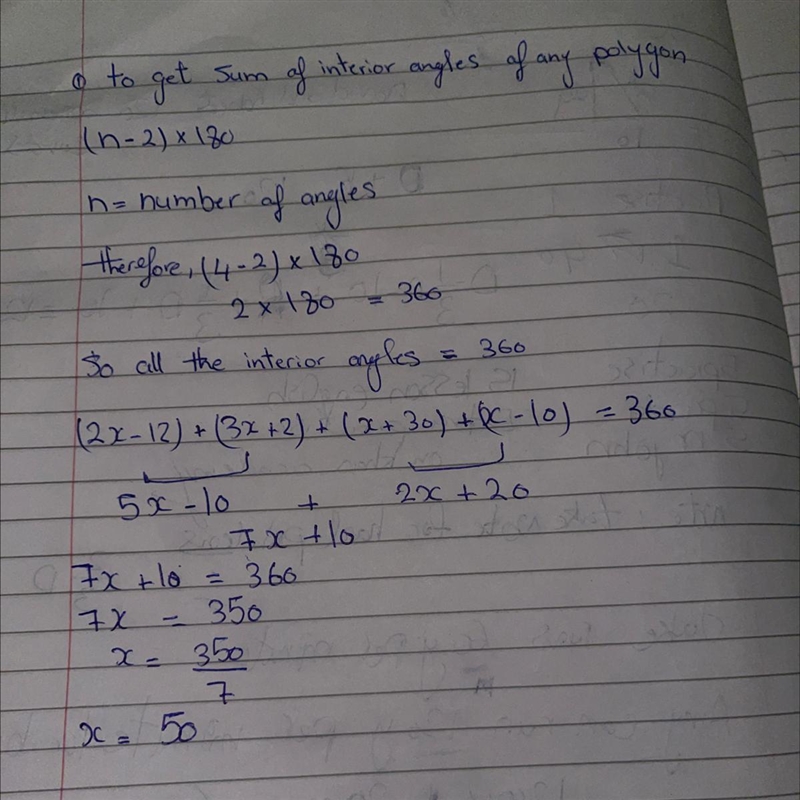 to get sum of interior angles of any polygon
(n-2) × 180
n = number of angles
therefore, (4-2) × 180
2 × 180 = 360
So all the interior angles = 360
(2x-12) + (3x+2) + (x+30) + (x-10) = 360
5x-10 + 2x+20
7x+10
7x+10 = 360
7x = 350
x = 350/7
x = 50